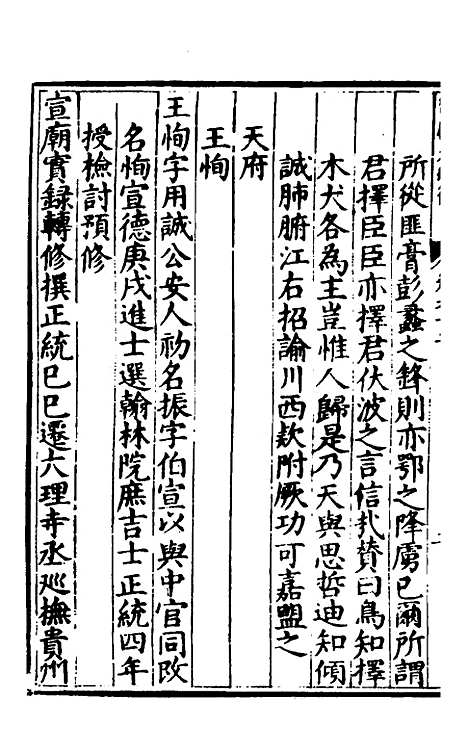 所從匪膏彭蠡之鋒則亦鄂之降虜已爾所謂
君擇臣臣亦擇君伏波之言信扎贊曰鳥知擇
木犬各為主豈惟人歸是乃天與思哲迪知傾
誠肺腑江右招諭川西欵附厥功可嘉盟之
天府
王恂
王恂字用誠公安人初名振字伯宣以與中官同改
名恂宣德庚戌進士選翰林院庶吉士正統四年
授檢討預修
宣廟實録轉修撰正統巳巳遷大理寺丞巡撫貴州